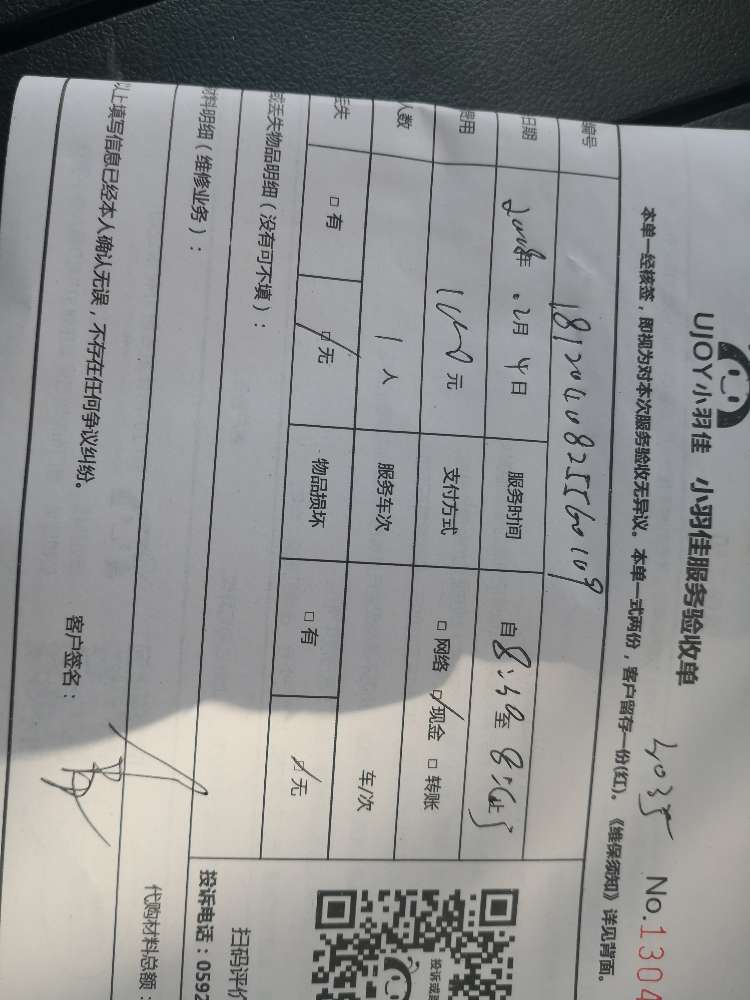 UJOY小羽佳 小羽佳服务验收单
4035 No.1304
本单一经核签，即视为对本次服务验收无异议。本单一式两份，客户留存一份(红)。《维保须知》详见背面。
编号 1812040825560109
日期 年 2月 4日 服务时间 自 8:40 至
费用 元 支付方式 □ 网络 ☑ 现金 □ 转账
人数 1 人 服务车次 车/次
丢失 □ 有 ☑ 无 物品损坏 □ 有 ☑ 无
或丢失物品明细（没有可不填）：
材料明细（维修业务）：
以上填写信息已经本人确认无误，不存在任何争议纠纷。
客户签名：
投诉或
扫码评价
投诉电话：0592
代购材料总额：